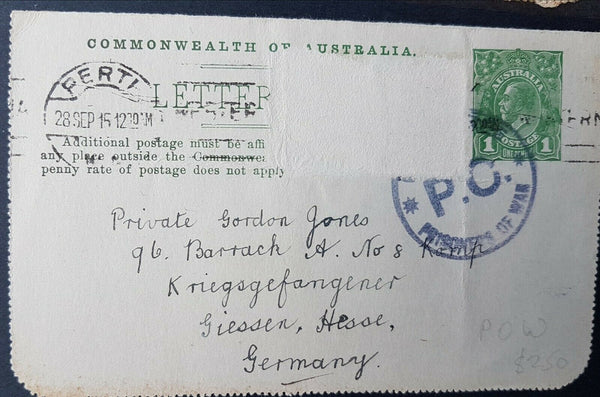 COMMONWEALTH OF AUSTRALIA.
PERTH
28 SEP 15 1230PM
LETTER
AUSTRALIA
POSTAGE
1 ONE PENNY 1
Additional postage must be affi
any place outside the Commonwea
penny rate of postage does not apply
P.O.
PRISONERS OF WAR
Private Gordon Jones
96. Barrack A. No 8 Komp
Kriegsgefangener
Giessen, Hesse,
Germany.
POW
$250